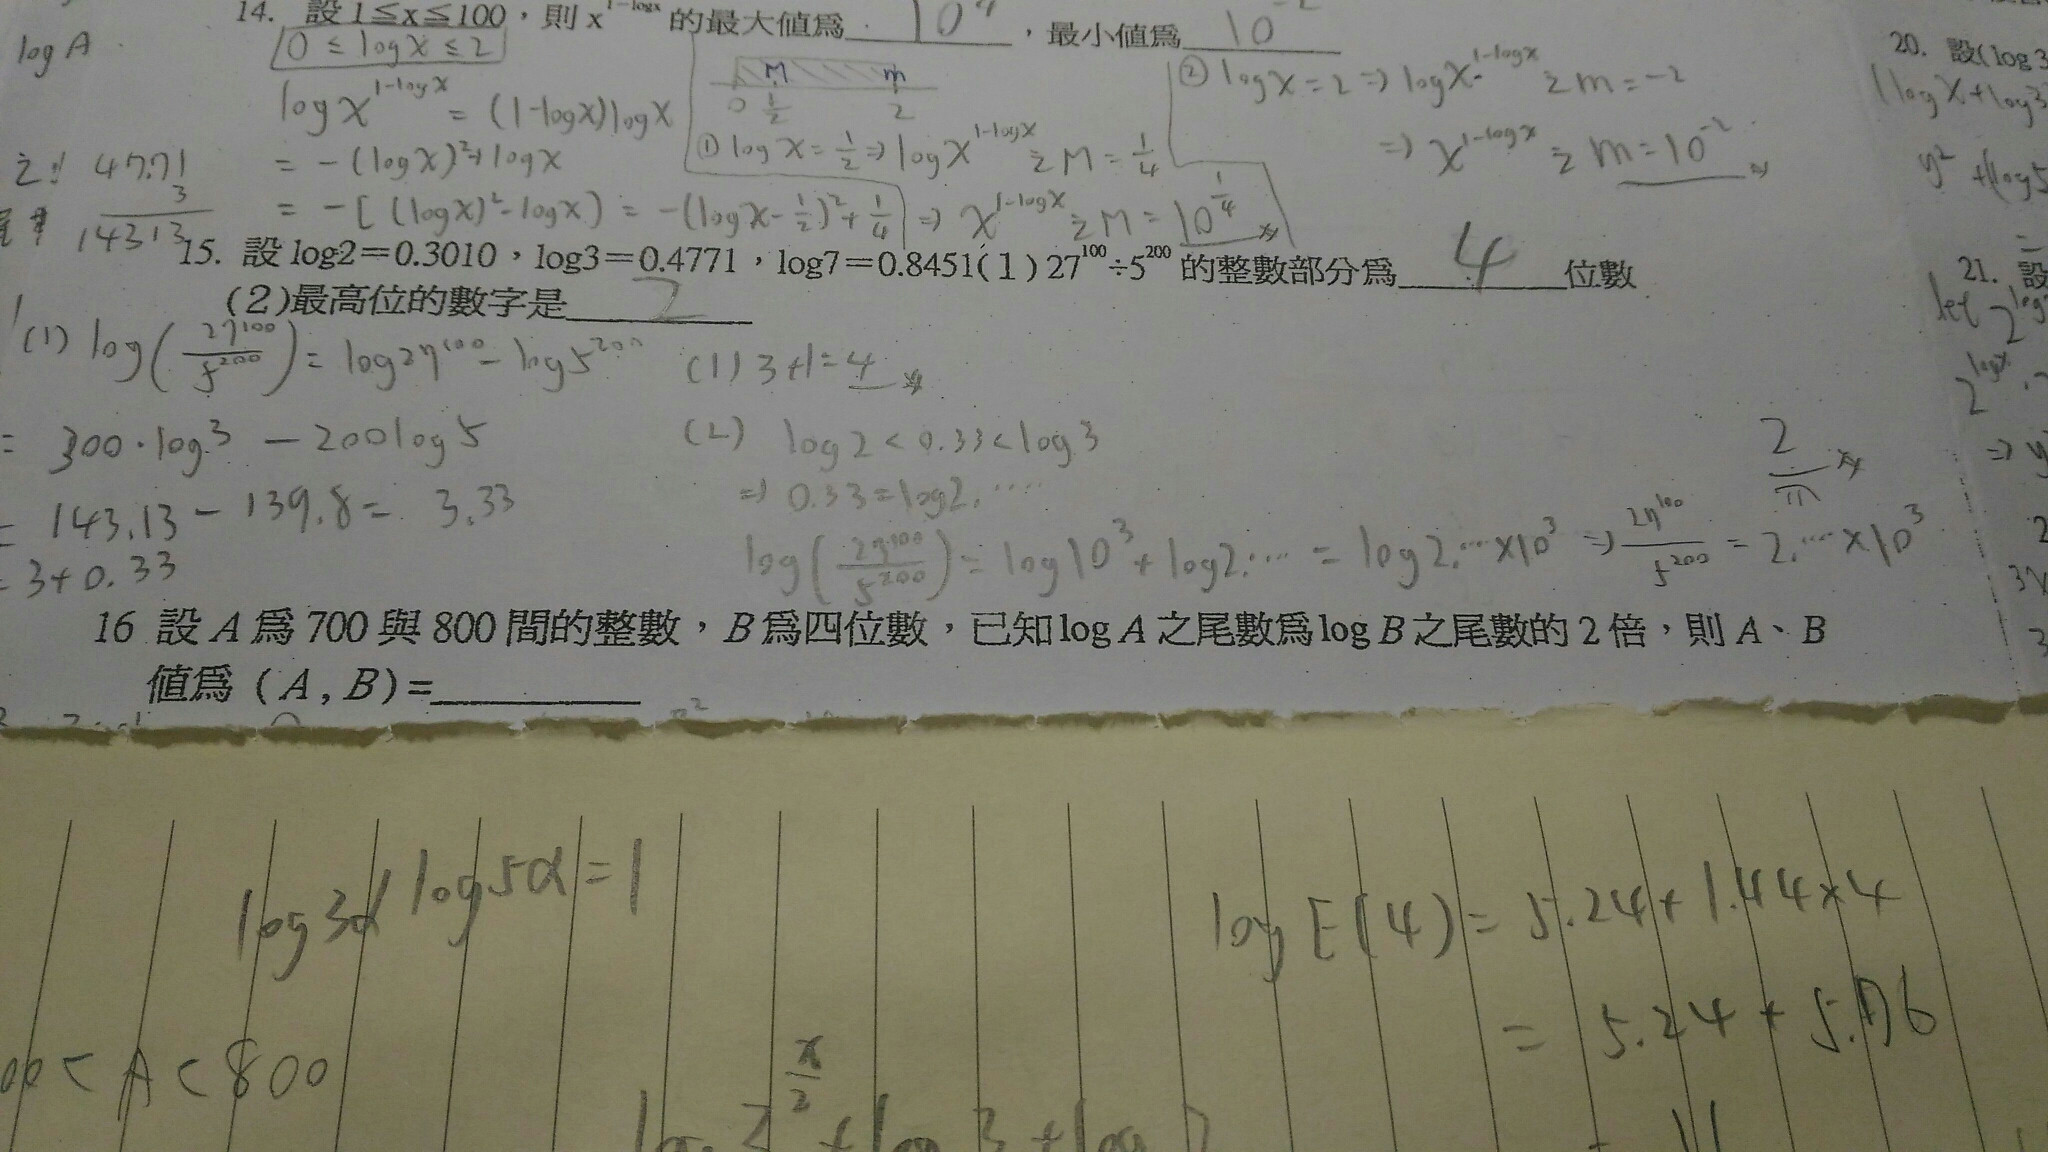 14. 設 1≤x≤100，則 x^{1-logx} 的最大值為 ，最小值為 10^{-2}
0 ≤ logx ≤ 2
log A
logx^{1-logx} = (1-logx)logx
= -(logx)²+logx
= -[(logx)²-logx] = -(logx-1/2)²+1/4
M m
0 1/2 2
① logx = 1/2 ⇒ logx^{1-logx} 之 M = 1/4
⇒ x^{1-logx} 之 M = 10^{1/4}
② logx = 2 ⇒ logx^{1-logx} 之 m = -2
⇒ x^{1-logx} 之 m = 10^{-2}
47.71
3
143.13
15. 設 log2=0.3010，log3=0.4771，log7=0.8451(1) 27^{100}÷5^{200} 的整數部分為 4 位數
(2)最高位的數字是 2
(1) log(27^{100}/5^{200}) = log27^{100} - log5^{200}
= 300·log3 - 200log5
= 143.13 - 139.8 = 3.33
= 3+0.33
(1) 3+1=4
(2) log2 < 0.33 < log3
⇒ 0.33 = log2.·····
log(27^{100}/5^{200}) = log10³ + log2.···· = log2.···×10³ ⇒ 27^{100}/5^{200} = 2.···×10³
2
16 設 A 為 700 與 800 間的整數，B 為四位數，已知 log A 之尾數為 log B 之尾數的 2 倍，則 A、B
值為 (A , B)=
20. 設(log3
21. 設
let 2^{log
log3α log5α = 1
log E(4) = 5.24 + 1.44×4
= 5.24 + 5.76
00 < A < 800